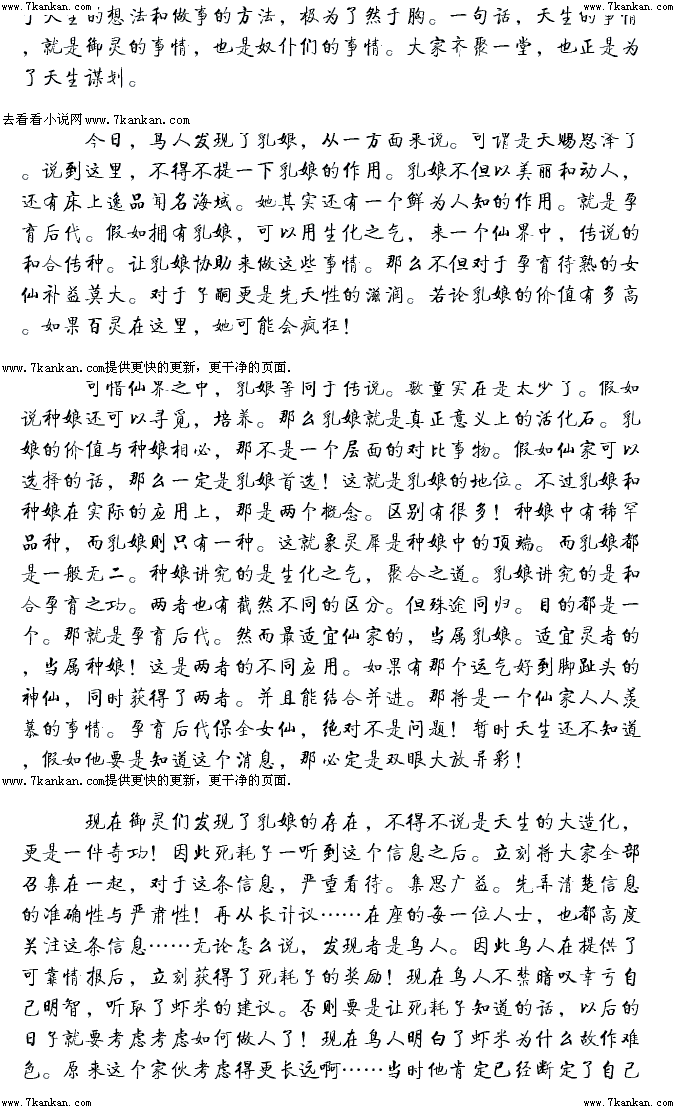 www.7kankan.com www.7kankan.com www.7kankan.com
了天生的想法和做事的方法，极为了然于胸。一句话，天生的事情
，就是御灵的事情，也是奴仆们的事情。大家齐聚一堂，也正是为
了天生谋划。
去看看小说网www.7kankan.com
今日，鸟人发现了乳娘，从一方面来说。可谓是天赐恩泽了
。说到这里，不得不提一下乳娘的作用。乳娘不但以美丽和动人，
还有床上逸品闻名海域。她其实还有一个鲜为人知的作用。就是孕
育后代。假如拥有乳娘，可以用生化之气，来一个仙界中，传说的
和合传种。让乳娘协助来做这些事情。那么不但对于孕育待熟的女
仙补益莫大。对于子嗣更是先天性的滋润。若论乳娘的价值有多高
。如果百灵在这里，她可能会疯狂！
www.7kankan.com提供更快的更新，更干净的页面.
可惜仙界之中，乳娘等同于传说。数童实在是太少了。假如
说种娘还可以寻觅，培养。那么乳娘就是真正意义上的活化石。乳
娘的价值与种娘相必，那不是一个层面的对比事物。假如仙家可以
选择的话，那么一定是乳娘首选！这就是乳娘的地位。不过乳娘和
种娘在实际的应用上，那是两个概念。区别有很多！种娘中有稀罕
品种，而乳娘则只有一种。这就象灵犀是种娘中的顶端。而乳娘都
是一般无二。种娘讲究的是生化之气，聚合之道。乳娘讲究的是和
合孕育之功。两者也有截然不同的区分。但殊途同归。目的都是一
个。那就是孕育后代。然而最适宜仙家的，当属乳娘。适宜灵者的
，当属种娘！这是两者的不同应用。如果有那个运气好到脚趾头的
神仙，同时获得了两者。并且能结合并进。那将是一个仙家人人羡
慕的事情。孕育后代保全女仙，绝对不是问题！暂时天生还不知道
，假如他要是知道这个消息，那必定是双眼大放异彩！
www.7kankan.com提供更快的更新，更干净的页面.
现在御灵们发现了乳娘的存在，不得不说是天生的大造化，
更是一件奇功！因此死耗子一听到这个信息之后。立刻将大家全部
召集在一起，对于这条信息，严重看待。集思广益。先弄清楚信息
的准确性与严肃性！再从长计议……在座的每一位人士，也都高度
关注这条信息……无论怎么说，发现者是鸟人。因此鸟人在提供了
可靠情报后，立刻获得了死耗子的奖励！现在鸟人不禁暗叹幸亏自
己明智，听取了虾米的建议。否则要是让死耗子知道的话，以后的
日子就要考虑考虑如何做人了！现在鸟人明白了虾米为什么故作难
色。原来这个家伙考虑得更长远啊……当时他肯定已经断定了自己
www.7kankan.com www.7kankan.com www.7kankan.com